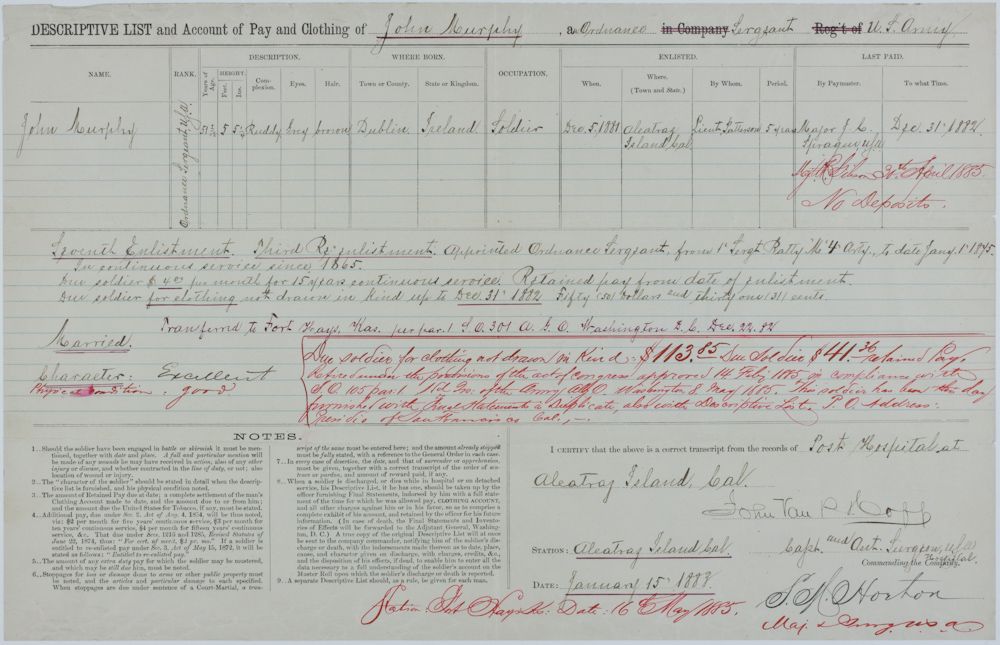 DESCRIPTIVE LIST and Account of Pay and Clothing of John Murphy, an Ordnance in Company Sergeant Reg't of U.S. Army
DESCRIPTION. WHERE BORN. ENLISTED. LAST PAID.
NAME. RANK. Years of Age. HEIGHT. Feet. Ins. Complexion. Eyes. Hair. Town or County. State or Kingdom. OCCUPATION. When. Where. (Town and State.) By Whom. Period. By Paymaster. To what Time.
John Murphy Ordnance Sergeant, U.S.A. 5 Ruddy Grey brown Dublin Ireland Soldier Dec. 5, 1881 Alcatraz Island Cal Lieut. Patterson 5 years Major J. C. Sprague, U.S.A. Dec. 31st 1882.
30th April 1885.
No Deposits.
Seventh Enlistment. Third Re-enlistment. Appointed Ordnance Sergeant, from 1st Sergt. Batty "M" 4" Arty., to date Jany. 1st 1875.
In continuous service since 1865.
Due soldier $4.00 per month for 15 years continuous service. Retained pay from date of enlistment.
Due soldier for clothing not drawn in kind up to Dec 31st 1882 Fifty (50) Dollars and thirty one (31) cents.
Transferred to Fort Hays, Kas. per par. 1 S.O. 301 A.G.O. Washington D.C. Dec. 22. 82
Married.
Character: Excellent
Physical Condition: good
Due soldier for clothing not drawn in kind = $113.85 Due Soldier $41.36 retained Pay.
Retired under the provisions of the act of Congress approved 14 Feby 1885 in compliance with
S.O. 105 par 1 Hd. Qrs. of the Army A.G.O. Washington 8 May 1885. This soldier has been this day
furnished with Final Statements in Duplicate, also with Descriptive List. P.O. Address:
Presidio of San Francisco Cal.,
NOTES.
1..Should the soldier have been engaged in battle or skirmish it must be mentioned, together with date and place. A full and particular mention will be made of any wounds he may have received in action; also of any other injury or disease, and whether contracted in the line of duty, or not; also location of wound or injury.
2..The "character of the soldier" should be stated in detail when the descriptive list is furnished, and his physical condition noted.
3..The amount of Retained Pay due at date; a complete settlement of the man's Clothing Account made to date, and the amount due to or from him; and the amount due the United States for Tobacco, if any, must be stated.
4..Additional pay, due under Sec. 2, Act of Aug. 4, 1854, will be thus noted, viz: $2 per month for five years' continuous service, $3 per month for ten years' continuous service, $4 per month for fifteen years' continuous service, &c. That due under Secs. 1216 and 1285, Revised Statutes of June 22, 1874, thus: "Per cert. of merit, $2 per mo." If a soldier is entitled to re-enlisted pay under Sec. 3, Act of May 15, 1872, it will be stated as follows: "Entitled to re-enlisted pay."
5..The amount of any extra duty pay for which the soldier may be mustered, and which may be still due him, must be noted.
6..Stoppages for loss or damage done to arms or other public property must be noted, and the articles and particular damage to each specified. When stoppages are due under sentence of a Court-Martial, a transcript of the same must be entered here; and the amount already stopped must be fully stated, with a reference to the General Order in each case.
7..In every case of desertion, the date, and that of surrender or apprehension, must be given, together with a correct transcript of the order of sentence or pardon, and amount of reward paid, if any.
8..When a soldier is discharged, or dies while in hospital or on detached service, his Descriptive List, if he has one, should be taken up by the officer furnishing Final Statements, indorsed by him with a full statement of the time for which he was allowed pay, CLOTHING ACCOUNT, and all other charges against him or in his favor, so as to comprise a complete exhibit of his account, and retained by the officer for his future information. (In case of death, the Final Statements and Inventories of Effects will be forwarded to the Adjutant General, Washington, D. C.) A true copy of the original Descriptive List will at once be sent to the company commander, notifying him of the soldier's discharge or death, with the indorsements made thereon as to date, place, cause, and character given on discharge, with charges, credits, &c., and the disposition of his effects, if dead, to enable him to enter all the data necessary to a full understanding of the soldier's account on the Muster Roll upon which the soldier's discharge or death is reported.
9..A separate Descriptive List should, as a rule, be given for each man.
I CERTIFY that the above is a correct transcript from the records of Post Hospital at
Alcatraz Island, Cal.
John Van R. Hoff
STATION: Alcatraz Island Cal Capt. and Asst. Surgeon, U.S.A.
Commanding the Company. Hospital.
DATE: January 15th 1883.
Station Fort Hays K: Date: 16th May 1885.
S. M. Horton
Maj. & Surg. U.S.A.